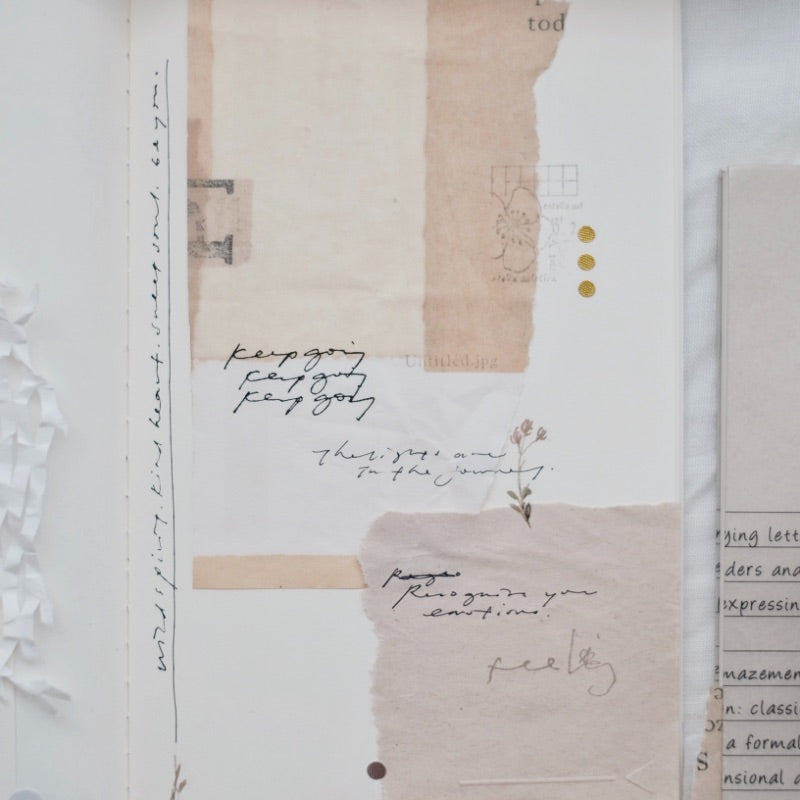 tod
wild spirit. kind heart. sweet soul. be you.
Untitled.jpg
Keep going
Keep going
Keep going
The lights are
in the journey.
Recognize your
emotions.
feeling
ying lett
ders and
expressin
mazemen
n: classi
a formal
nsional a
S